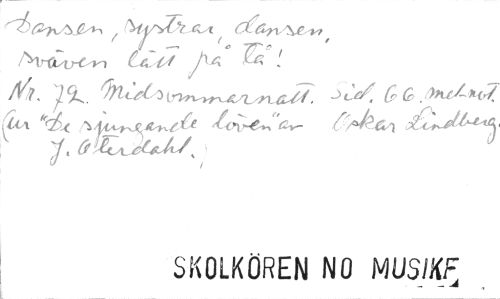 Dansen, systrar, dansen,
sväven lätt på tå!
Nr. 72. Midsommarnatt. Sid. 66. mel-not.
(ur "De sjungande löven" av Oskar Lindberg.
J. Oterdahl.)
SKOLKÖREN NO MUSIKF